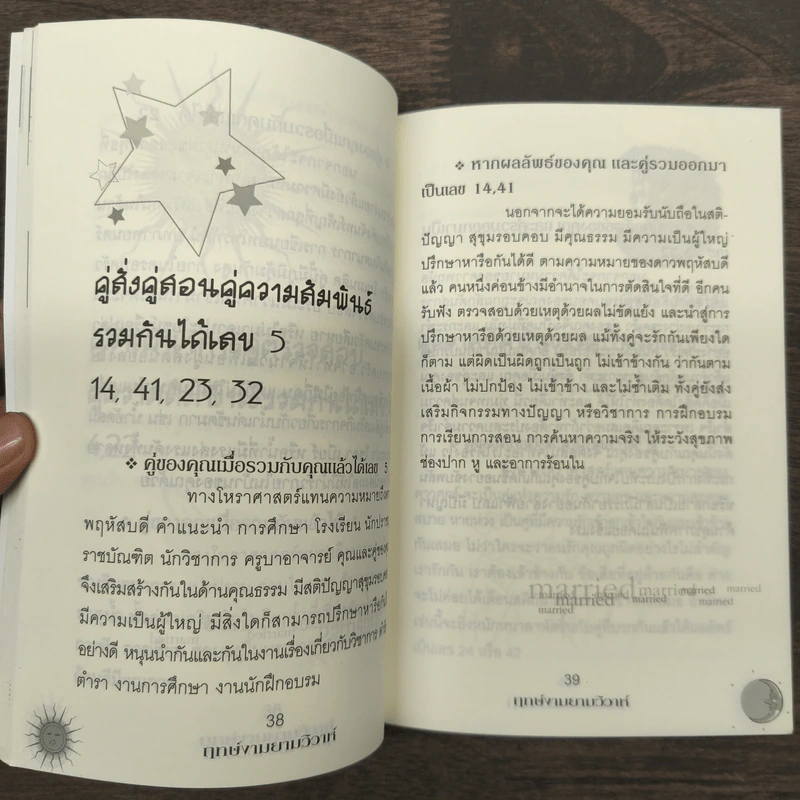 คู่สั่งคู่สอนคู่ความสัมพันธ์
รวมกันได้เลข 5
14, 41, 23, 32
❖ คู่ของคุณเมื่อรวมกับคุณแล้วได้เลข 5
ทางโหราศาสตร์แทนความหมายถึง
พฤหัสบดี คำแนะนำ การศึกษา โรงเรียน
ราชบัณฑิต นักวิชาการ ครูบาอาจารย์
จึงเสริมสร้างกันในด้านคุณธรรม มีสติปัญญาสุขุม
มีความเป็นผู้ใหญ่ มีสิ่งใดก็สามารถปรึกษาหารือ
อย่างดี หนุนนำกันและกันในงานเรื่องเกี่ยวกับวิชาการ
ตำรา งานการศึกษา งานนักฝึกอบรม
38
ฤกษ์งามยามวิวาห์
❖ หากผลลัพธ์ของคุณ และคู่รวมออกมา
เป็นเลข 14,41
นอกจากจะได้ความยอมรับนับถือในสติ-
ปัญญา สุขุมรอบคอบ มีคุณธรรม มีความเป็นผู้ใหญ่
ปรึกษาหารือกันได้ดี ตามความหมายของดาวพฤหัสบดี
แล้ว คนหนึ่งค่อนข้างมีอำนาจในการตัดสินใจที่ดี อีกคน
รับฟัง ตรวจสอบด้วยเหตุด้วยผลไม่ขัดแย้ง และนำสู่การ
ปรึกษาหารือด้วยเหตุด้วยผล แม้ทั้งคู่จะรักกันเพียงใด
ก็ตาม แต่ผิดเป็นผิดถูกเป็นถูก ไม่เข้าข้างกัน ว่ากันตาม
เนื้อผ้า ไม่ปกป้อง ไม่เข้าข้าง และไม่ซ้ำเติม ทั้งคู่ยังส่ง
เสริมกิจกรรมทางปัญญา หรือวิชาการ การฝึกอบรม
การเรียนการสอน การค้นหาความจริง ให้ระวังสุขภาพ
ช่องปาก หู และอาการร้อนใน
married married married married
married married married
married
39
ฤกษ์งามยามวิวาห์